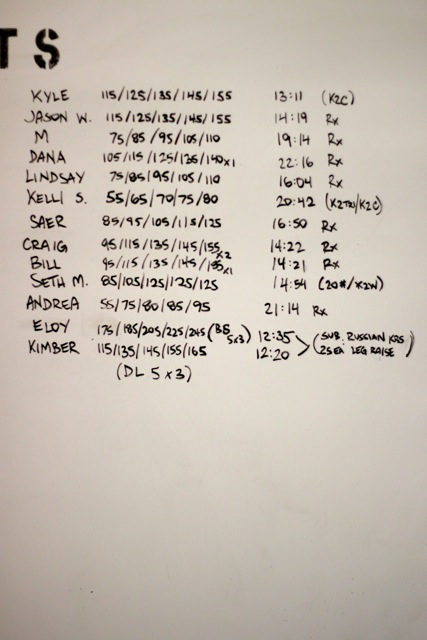 TS
KYLE 115/125/135/145/155 13:11 (K2C)
JASON W. 115/125/135/145/155 14:19 Rx
M 75/85/95/105/110 19:14 Rx
DANA 105/115/125/135/140x1 22:16 Rx
LINDSAY 75/85/95/105/110 16:04 Rx
KELLI S. 55/65/70/75/80 20:42 (K2TRU/K2C)
SAER 85/95/105/115/125 16:50 Rx
CRAIG 95/115/135/145/155x2 14:22 Rx
BILL 95/115/135/145/155x1 14:21 Rx
SETH M. 85/105/125/125/125 14:54 (20#/K2W)
ANDREA 55/75/80/85/95 21:14 Rx
ELOY 175/185/205/225/245 (BS 5x3) 12:35 (SUB. RUSSIAN KBS
KIMBER 115/135/145/155/165 12:20 25EA LEG RAISE)
(DL 5x3)